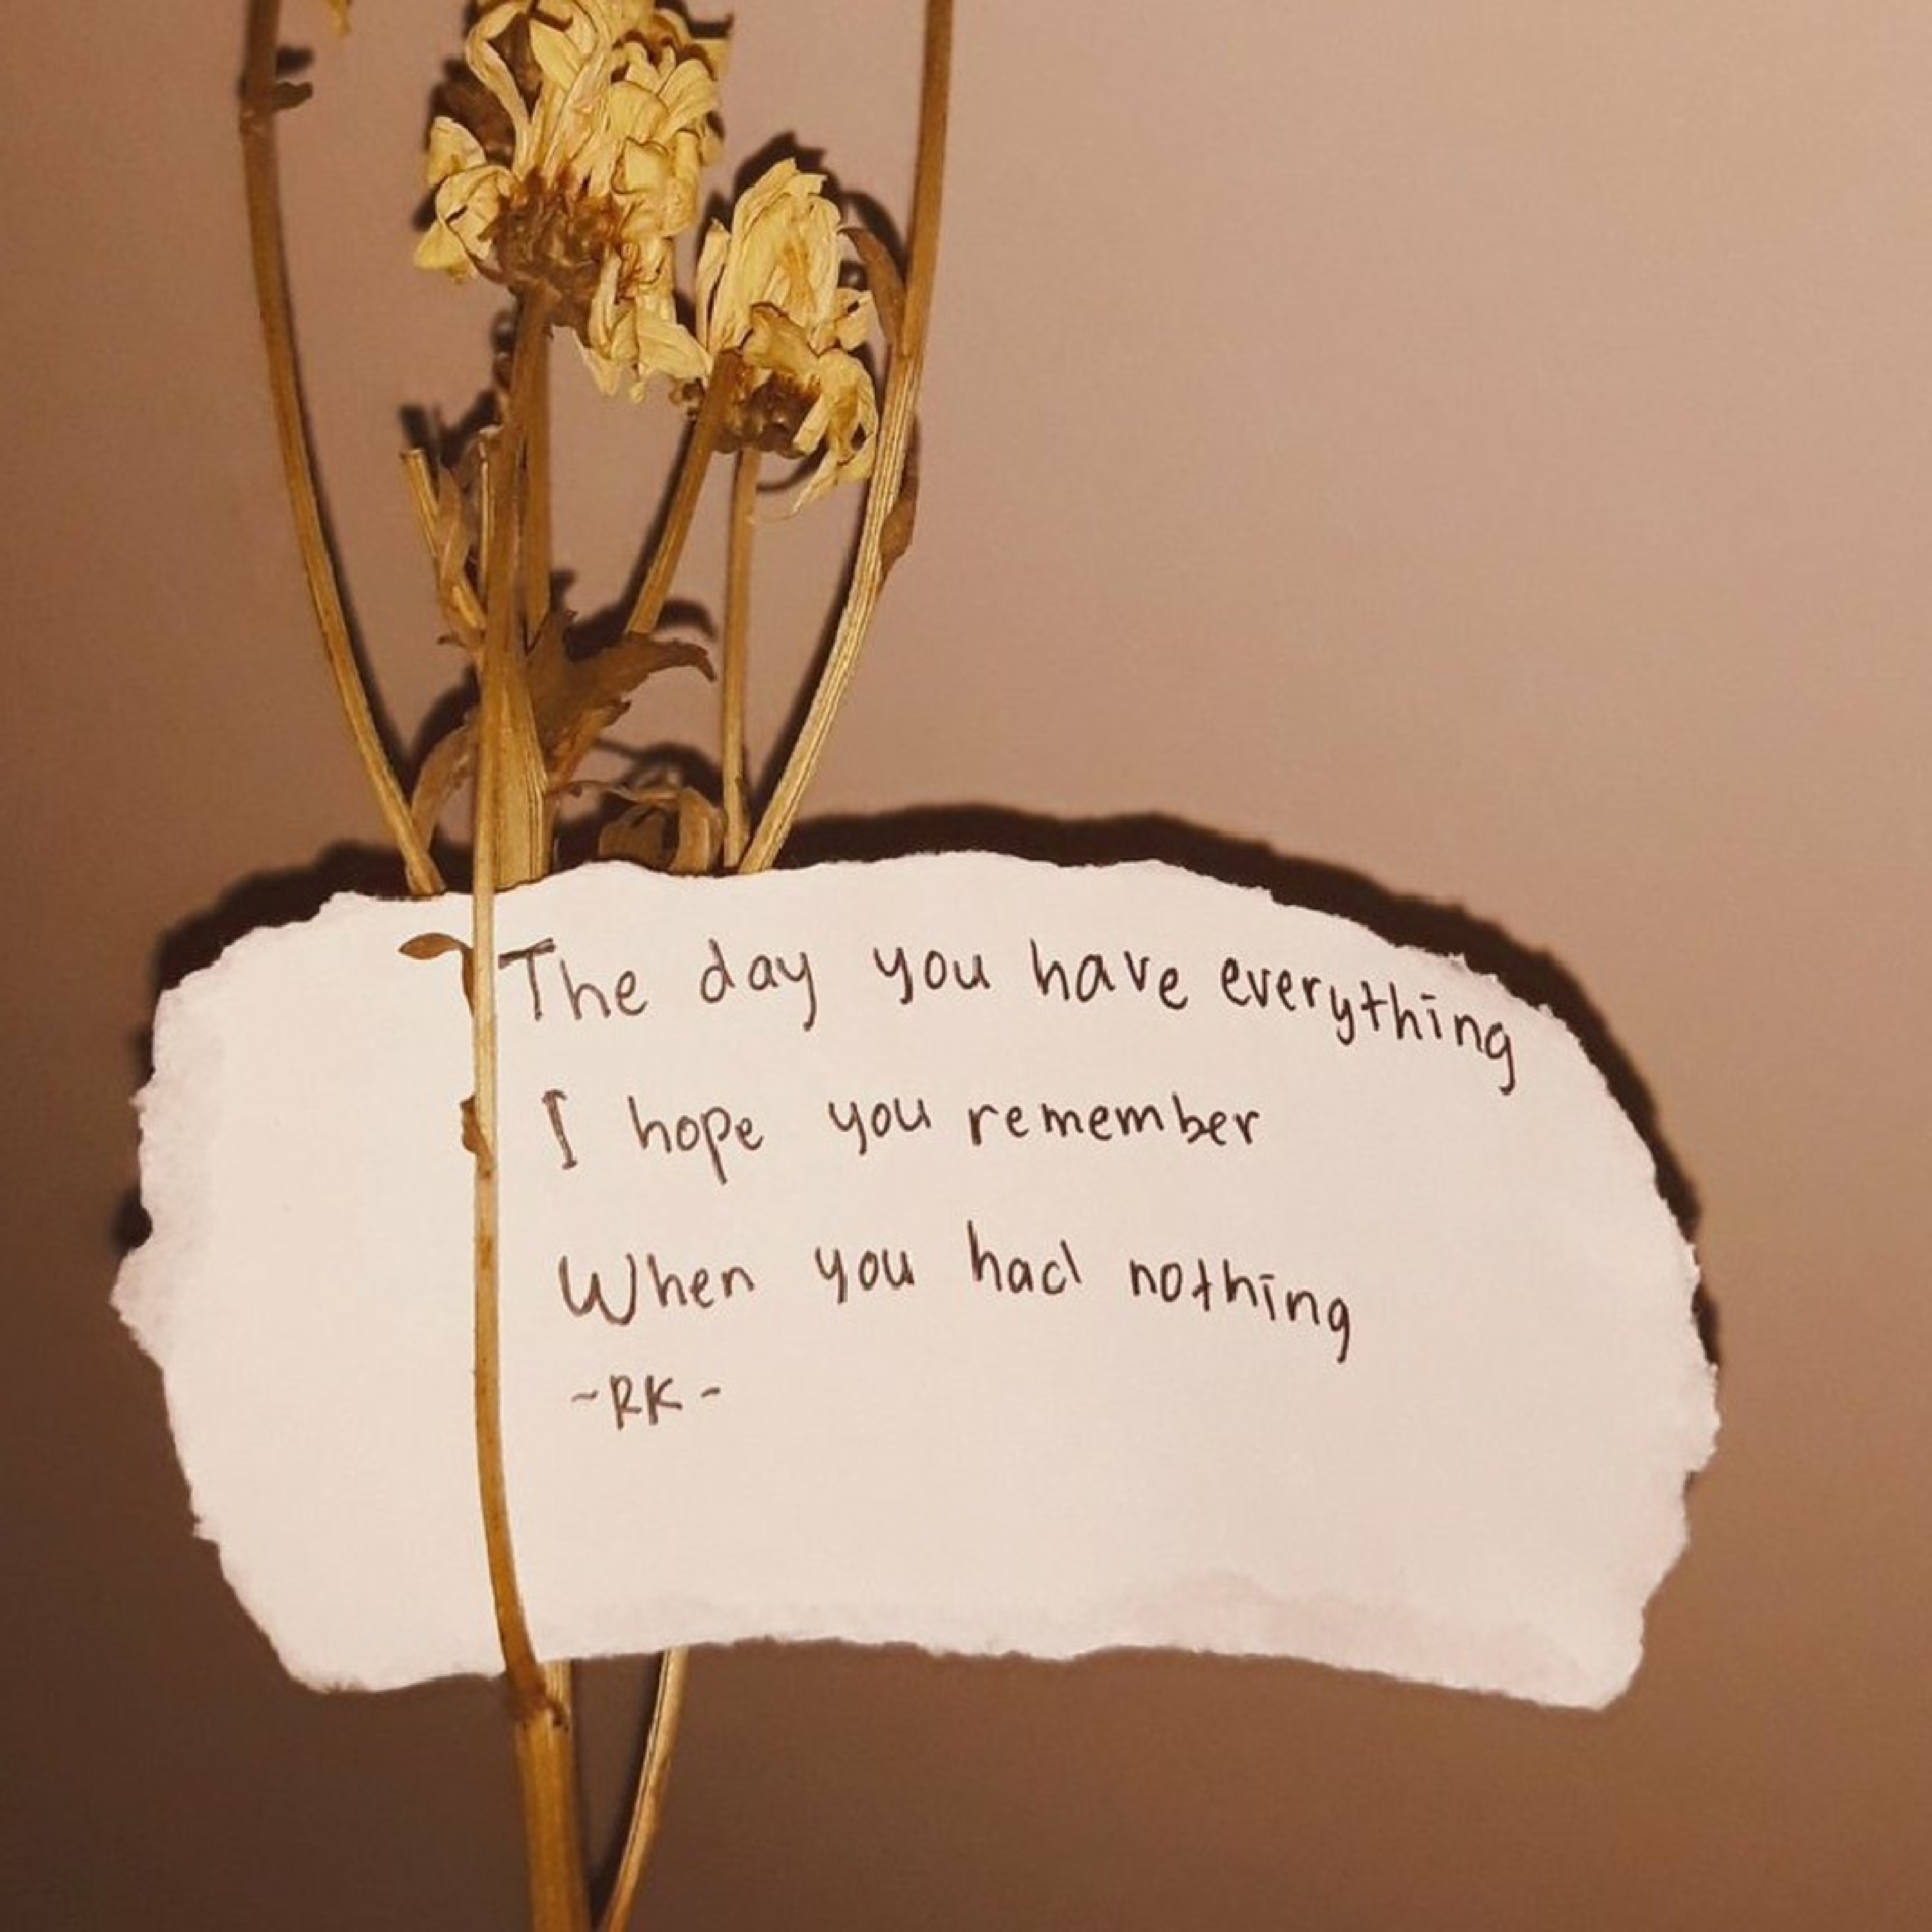 The day you have everything
I hope you remember
When you had nothing
~RK~